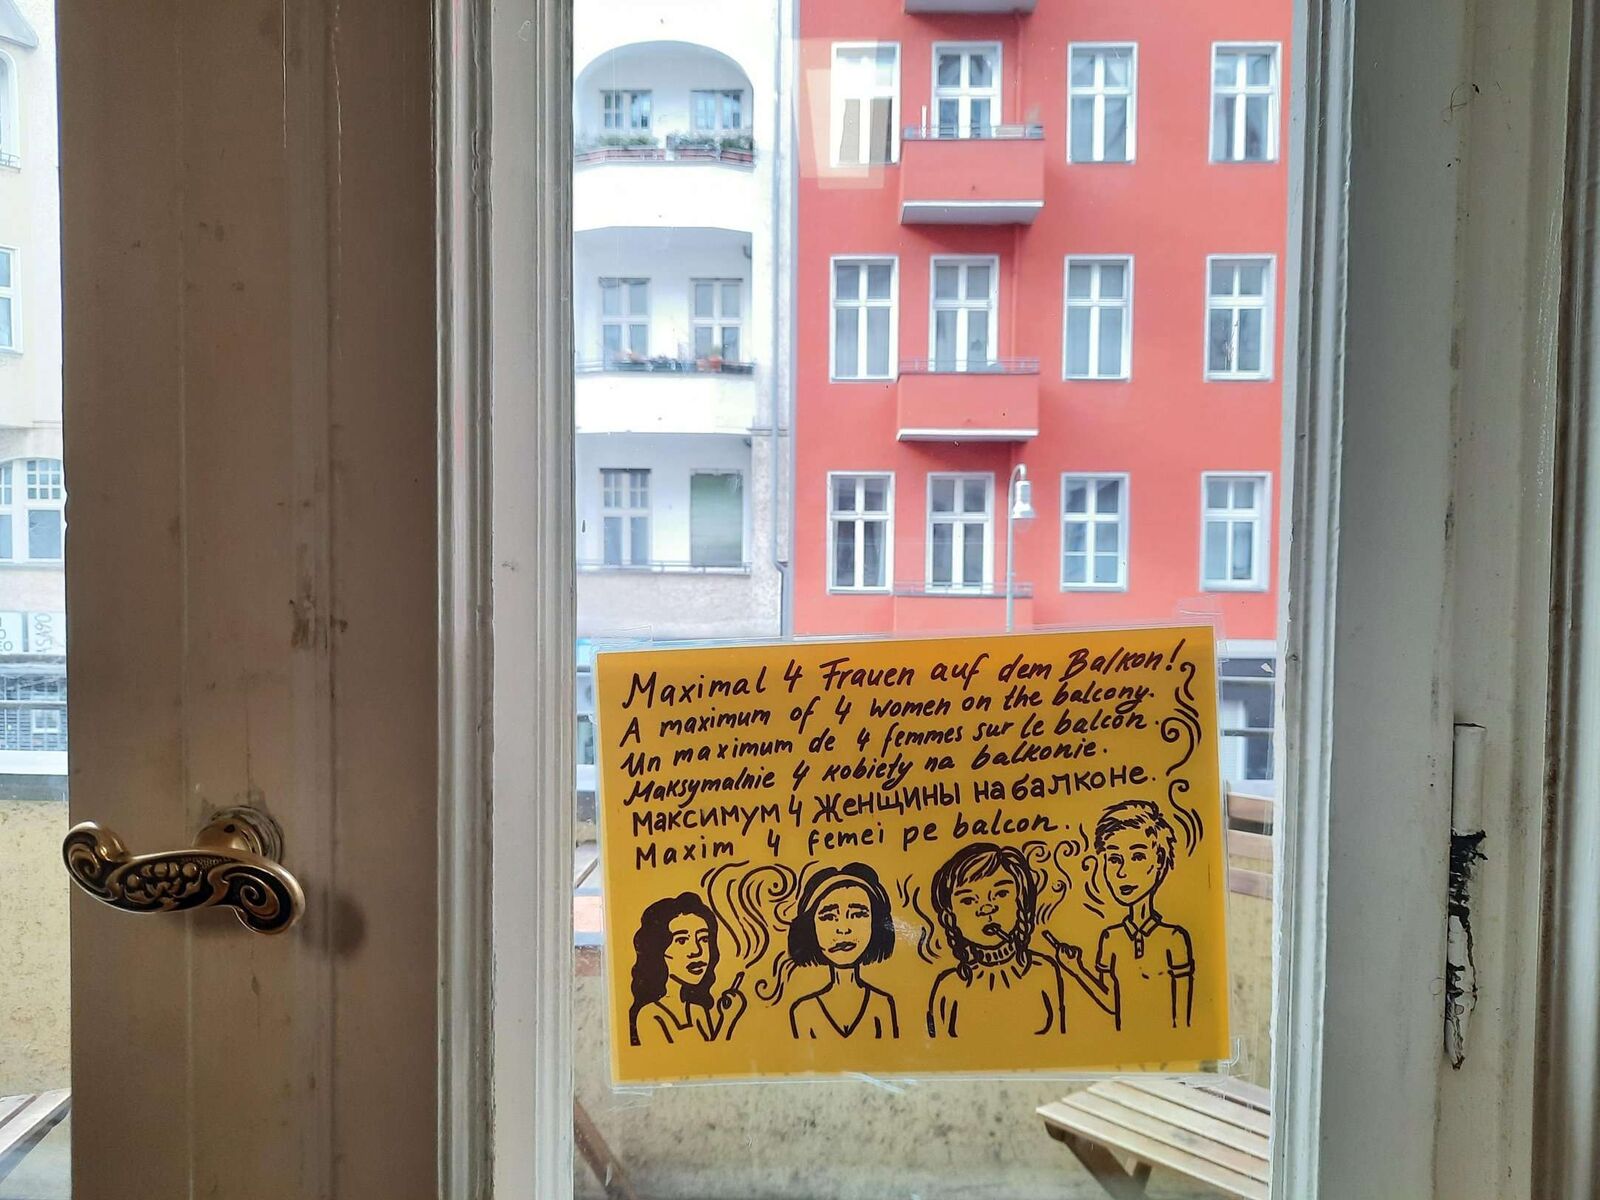 Maximal 4 Frauen auf dem Balkon!
A maximum of 4 women on the balcony.
Un maximum de 4 femmes sur le balcon.
Maksymalnie 4 kobiety na balkonie.
Максимум 4 женщины на балконе.
Maxim 4 femei pe balcon.